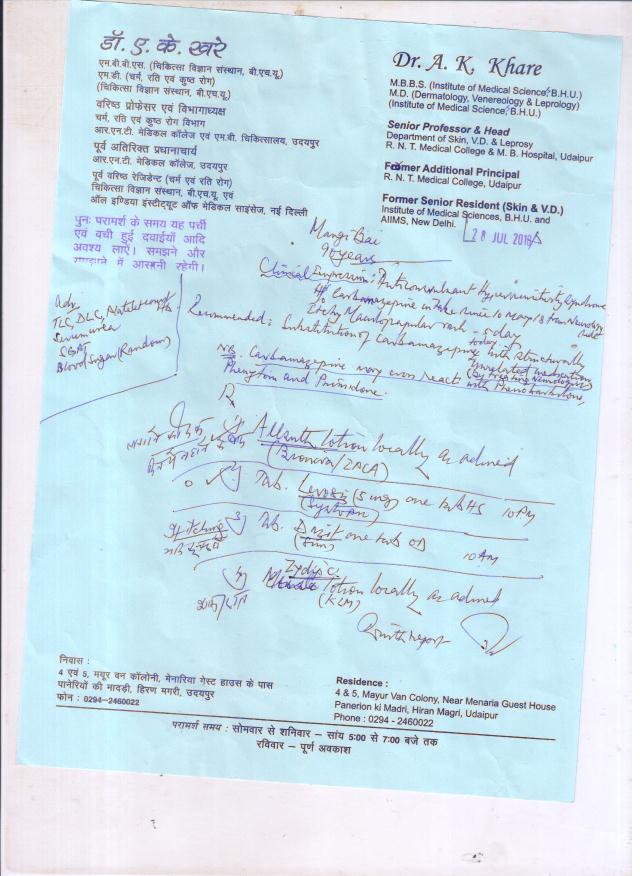 डॉ. ए. के. खरे
एम.बी.बी.एस. (चिकित्सा विज्ञान संस्थान, बी.एच.यू.)
एम.डी. (चर्म, रति एवं कुष्ठ रोग)
(चिकित्सा विज्ञान संस्थान, बी.एच.यू.)
वरिष्ठ प्रोफेसर एवं विभागाध्यक्ष
चर्म, रति एवं कुष्ठ रोग विभाग
आर.एन.टी. मेडिकल कॉलेज एवं एम.बी. चिकित्सालय, उदयपुर
पूर्व अतिरिक्त प्रधानाचार्य
आर.एन.टी. मेडिकल कॉलेज, उदयपुर
पूर्व वरिष्ठ रेजिडेन्ट (चर्म एवं रति रोग)
चिकित्सा विज्ञान संस्थान, बी.एच.यू. एवं
ऑल इण्डिया इंस्टीट्यूट ऑफ मेडिकल साइंसेज, नई दिल्ली
पुनः परामर्श के समय यह पर्ची
एवं बची हुई दवाईयाँ आदि
अवश्य लाऐं। समझने और
समझाने में आसानी रहेगी।
Dr. A. K. Khare
M.B.B.S. (Institute of Medical Science, B.H.U.)
M.D. (Dermatology, Venereology & Leprology)
(Institute of Medical Science, B.H.U.)
Senior Professor & Head
Department of Skin, V.D. & Leprosy
R. N. T. Medical College & M. B. Hospital, Udaipur
Former Additional Principal
R. N. T. Medical College, Udaipur
Former Senior Resident (Skin & V.D.)
Institute of Medical Sciences, B.H.U. and
AIIMS, New Delhi.
28 JUL 2018
Mangi Bai
90 years
Clinical Impression: Anticonvulsant Hypersensitivity Syndrome
Carbamazepine intake since 10 May 18 from Neurology
Itchy Maculopapular rash - 5 day
today
Recommended: Substitution of Carbamazepine with Structurally
unrelated medication
(By treating Neurologist)
NB. Carbamazepine may cross react with Phenobarbitone,
Phenytoin and Primidone.
Adv
TLC, DLC, Platelet count, Hb
Serum urea
SGPT
Blood Sugar (Random)
Rx
lotion locally as advised
2) Tab. (5 mg) one tab HS 10 PM
3) Tab. one tab OD 10 AM
4) Zydip C lotion locally as advised
(KLM)
R with report
निवास :
4 एवं 5, मयूर वन कॉलोनी, मेनारिया गेस्ट हाउस के पास
पानेरियों की मादड़ी, हिरण मगरी, उदयपुर
फोन : 0294-2460022
Residence :
4 & 5, Mayur Van Colony, Near Menaria Guest House
Panerion ki Madri, Hiran Magri, Udaipur
Phone : 0294 - 2460022
परामर्श समय : सोमवार से शनिवार - सांय 5:00 से 7:00 बजे तक
रविवार - पूर्ण अवकाश